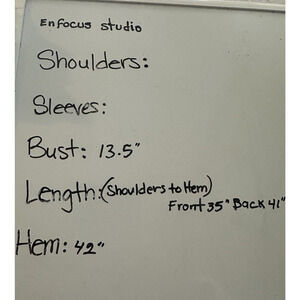 Enfocus studio
Shoulders:
Sleeves:
Bust: 13.5"
Length:(Shoulders to Hem)
Front 35" Back 41"
Hem: 42"